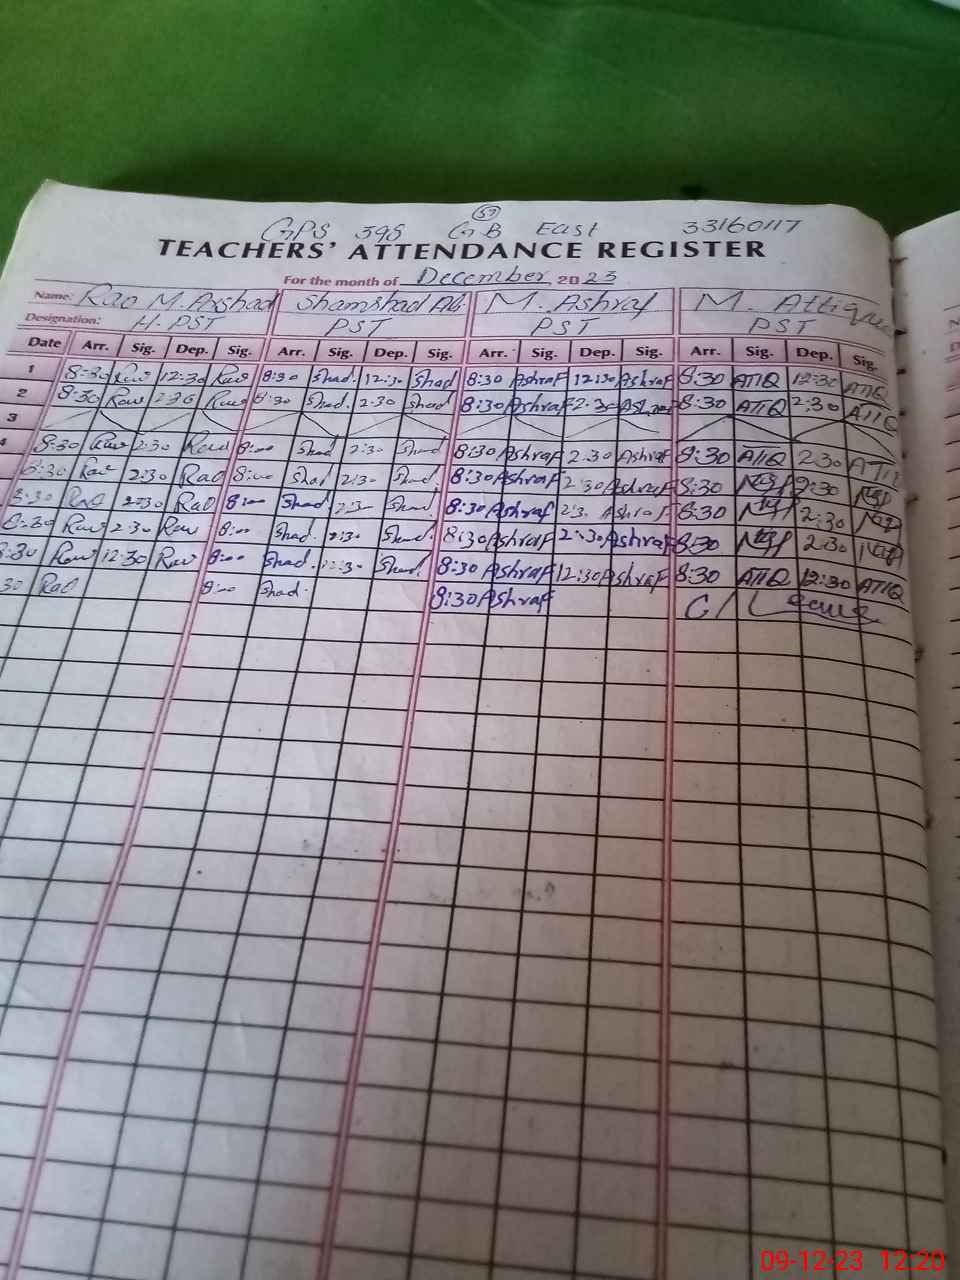 57
GPS 595 GB East 33160117
TEACHERS' ATTENDANCE REGISTER
For the month of December, 2023
Name: Rao M. Arshad Shamshad Ali M. Ashraf M. Attique
Designation: H. PST PST PST PST
Date Arr. Sig. Dep. Sig. Arr. Sig. Dep. Sig. Arr. Sig. Dep. Sig. Arr. Sig. Dep. Sig.
1 8:30 Rao 12:30 Rao 8:30 Shad. 12:30 Shad 8:30 Ashraf 12:30 Ashraf 8:30 ATIQ 12:30 ATIQ
2 8:30 Rao 2:30 Rao 8:30 Shad. 2:30 Shad 8:30 Ashraf 2:30 Ashraf 8:30 ATIQ 2:30 ATIQ
3
4 8:30 Rao 2:30 Rao 8:00 Shad 2:30 Shad. 8:30 Ashraf 2:30 Ashraf 8:30 ATIQ 2:30 ATIQ
8:30 Rao 2:30 Rao 8:00 Shad 2:30 Shad. 8:30 Ashraf 2:30 Ashraf 8:30 2:30
8:30 Rao 2:30 Rao 8:00 Shad. 2:30 Shad. 8:30 Ashraf 2:30 Ashraf 8:30 2:30
8:30 Rao 2:30 Rao 8:00 Shad. 2:30 Shad. 8:30 Ashraf 2:30 Ashraf 8:30 2:30
8:30 Rao 12:30 Rao 8:00 Shad. 12:30 Shad. 8:30 Ashraf 12:30 Ashraf 8:30 ATIQ 12:30 ATIQ
30 Rao 8:00 Shad. 8:30 Ashraf C/ Leave
09-12-23 12:20